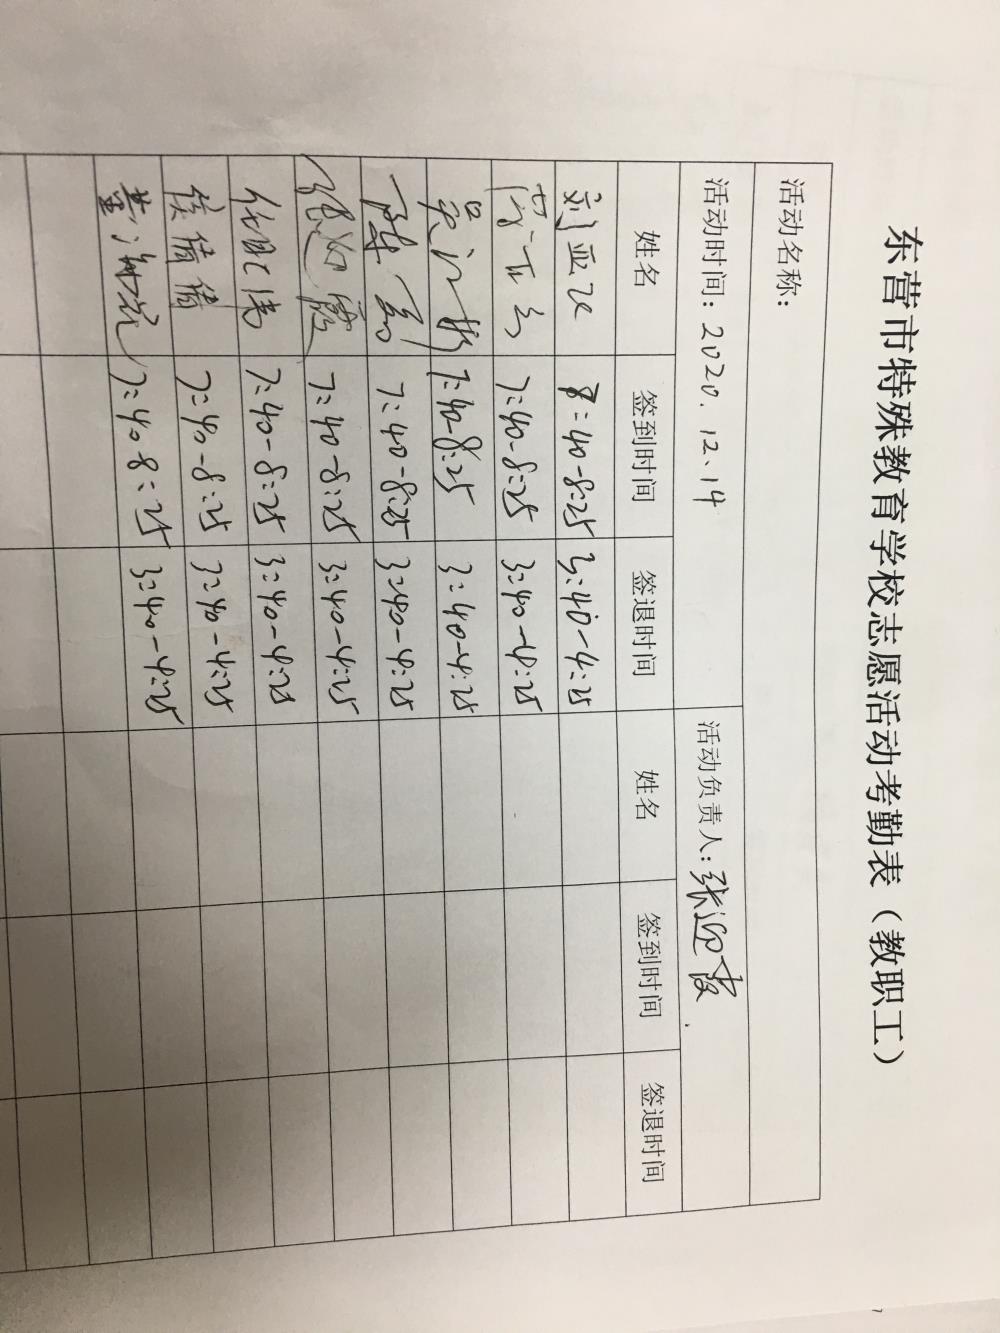 东营市特殊教育学校志愿活动考勤表（教职工）
活动名称：
活动时间：2020.12.14 活动负责人：张迎霞
姓名 签到时间 签退时间 姓名 签到时间 签退时间
刘亚 8:40-8:25 3:40-4:25
7:40-8:25 3:40-4:25
吴 7:40-8:25 3:40-4:25
陈 7:40-8:25 3:40-4:25
张迎霞 7:40-8:25 3:40-4:25
7:40-8:25 3:40-4:25
侯倩倩 7:40-8:25 3:40-4:25
7:40 8:25 3:40-4:25